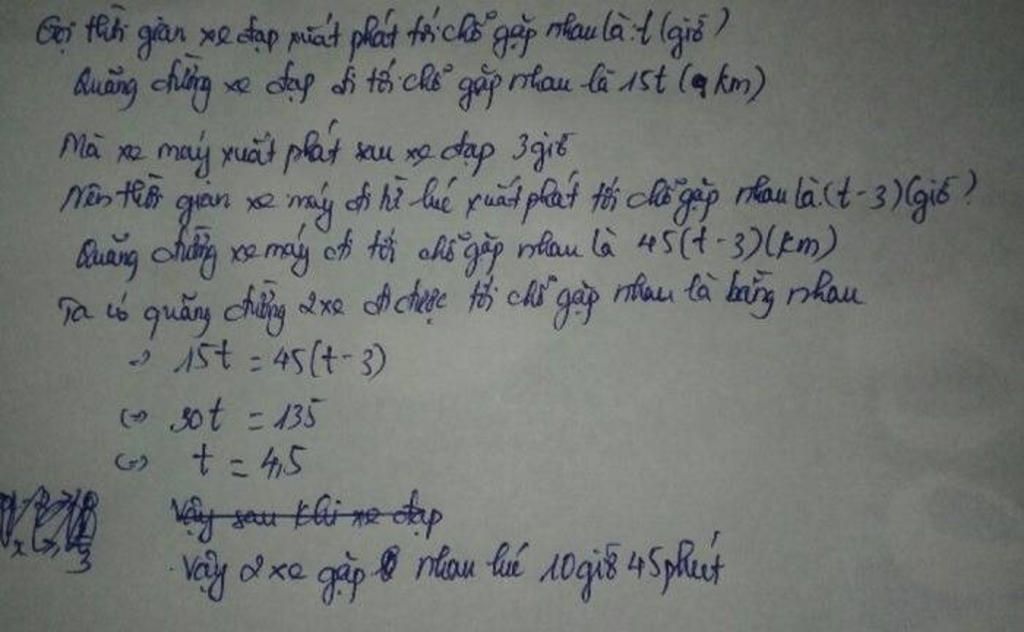 Gọi thời gian xe đạp xuất phát tới chỗ gặp nhau là: t (giờ)
Quãng đường xe đạp đi tới chỗ gặp nhau là 15t (km)
Mà xe máy xuất phát sau xe đạp 3 giờ
Nên thời gian xe máy đi từ lúc xuất phát tới chỗ gặp nhau là: (t - 3) (giờ)
Quãng đường xe máy đi tới chỗ gặp nhau là 45(t - 3) (km)
Ta có quãng đường 2 xe đi được tới chỗ gặp nhau là bằng nhau
=> 15t = 45(t - 3)
<=> 30t = 135
<=> t = 4,5
Vậy sau khi xe đạp
Vậy 2 xe gặp nhau lúc 10 giờ 45 phút